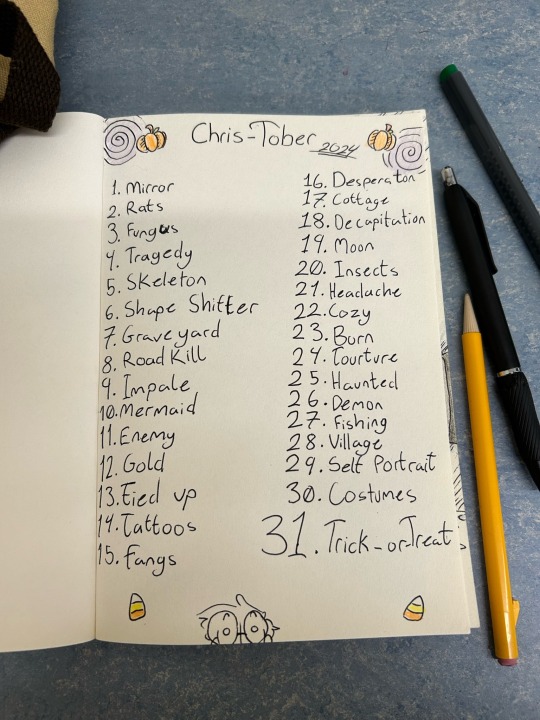 Chris-Tober 2024
1. Mirror
2. Rats
3. Fungus
4. Tragedy
5. Skeleton
6. Shape Shifter
7. Graveyard
8. Road Kill
9. Impale
10. Mermaid
11. Enemy
12. Gold
13. Tied up
14. Tattoos
15. Fangs
16. Desperaton
17. Cottage
18. Decapitation
19. Moon
20. Insects
21. Headache
22. Cozy
23. Burn
24. Tourture
25. Haunted
26. Demon
27. Fishing
28. Village
29. Self Portrait
30. Costumes
31. Trick-or-Treat